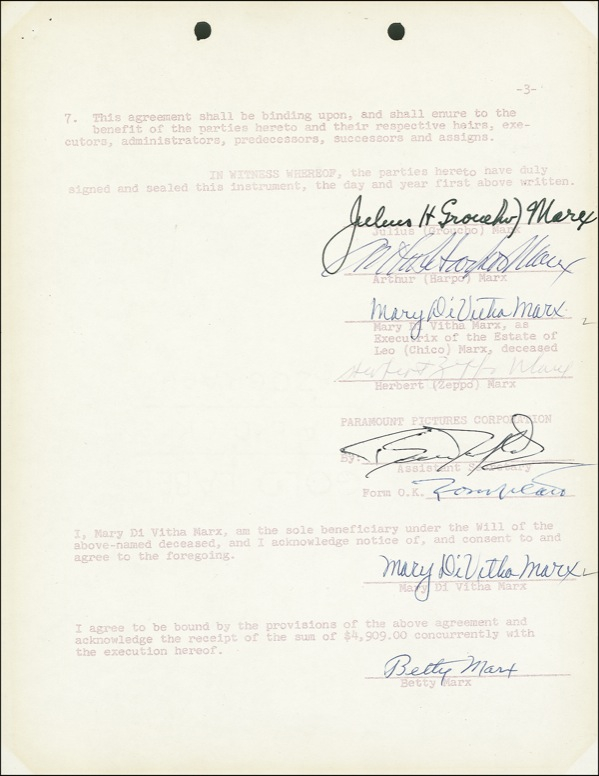 -3-
7. This agreement shall be binding upon, and shall enure to the
benefit of the parties hereto and their respective heirs, exe-
cutors, administrators, predecessors, successors and assigns.
IN WITNESS WHEREOF, the parties hereto have duly
signed and sealed this instrument, the day and year first above written.
Julius H Groucho) Marx
Julius (Groucho) Marx
Harpo Marx
Arthur (Harpo) Marx
Mary Di Vitha Marx
Mary Di Vitha Marx, as
Executrix of the Estate of
Leo (Chico) Marx, deceased
Herbert Zeppo Marx
Herbert (Zeppo) Marx
PARAMOUNT PICTURES CORPORATION
By.
Assistant Secretary
Form O.K.
I, Mary Di Vitha Marx, am the sole beneficiary under the Will of the
above-named deceased, and I acknowledge notice of, and consent to and
agree to the foregoing.
Mary Di Vitha Marx
Mary Di Vitha Marx
I agree to be bound by the provisions of the above agreement and
acknowledge the receipt of the sum of $4,909.00 concurrently with
the execution hereof.
Betty Marx
Betty Marx